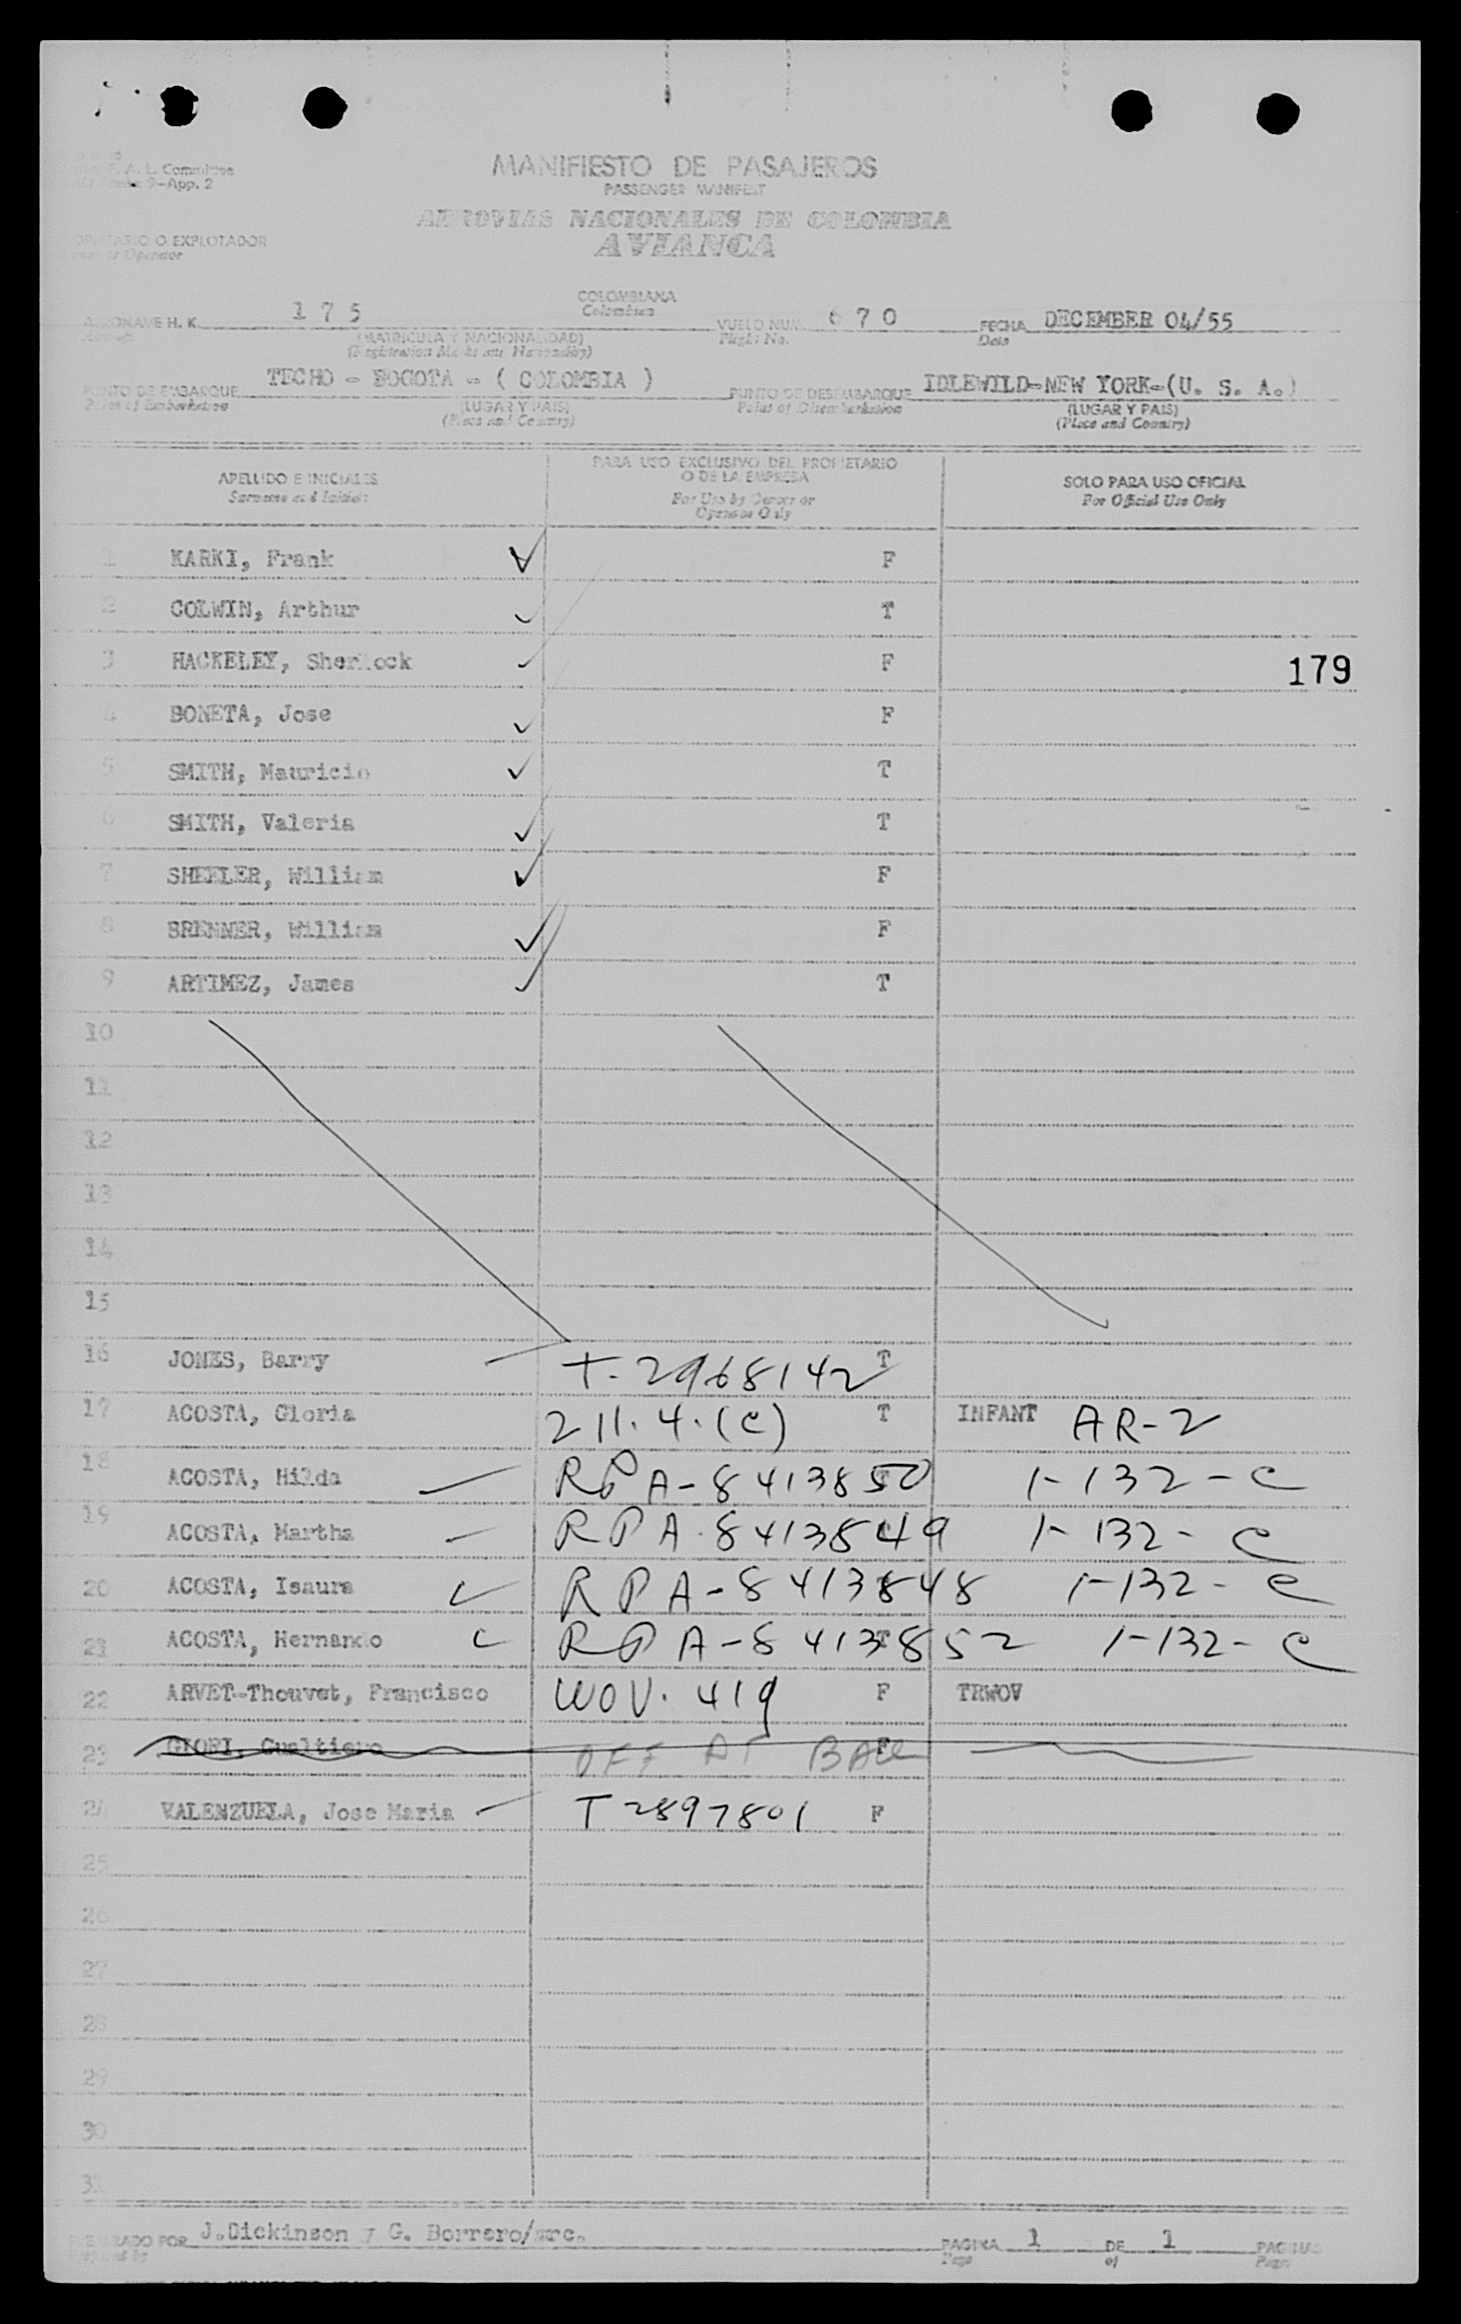 A. L. Committee
9-App. 2
MANIFIESTO DE PASAJEROS
PASSENGER MANIFEST
AEROVIAS NACIONALES DE COLOMBIA
AVIANCA
O EXPLOTADOR
or Operator
COLOMBIANA
Colombian
H. K. 175 VUELO NUM. 670 FECHA DECEMBER 04/55
Flight No. Date
(MATRICULA Y NACIONALIDAD)
(Registration Marks and Nationality)
PUNTO DE EMBARQUE TECHO - BOGOTA - ( COLOMBIA ) PUNTO DE DESEMBARQUE IDLEWILD-NEW YORK-(U. S. A.)
Point of Embarkation (LUGAR Y PAIS) Point of Disembarkation (LUGAR Y PAIS)
(Place and Country) (Place and Country)
APELLIDO E INICIALES PARA USO EXCLUSIVO DEL PROPIETARIO O DE LA EMPRESA SOLO PARA USO OFICIAL
Surname and Initials For Use by Owner or Operator Only For Official Use Only
1 KARKI, Frank F
2 COLWIN, Arthur T
3 HACKELEY, Sherlock F
179
4 BONETA, Jose F
5 SMITH, Mauricio T
6 SMITH, Valeria T
7 SHEELER, William F
8 BRENNER, William F
9 ARTIMEZ, James T
10
11
12
13
14
15
16 JONES, Barry T-2968142 T
17 ACOSTA, Gloria 211.4.(c) T INFANT AR-2
18 ACOSTA, Hilda RPA-8413850 1-132-C
19 ACOSTA, Martha RPA-8413849 1-132-C
20 ACOSTA, Isaura RPA-8413848 1-132-C
21 ACOSTA, Hernando RPA-8413852 T 1-132-C
22 ARVET-Thouvet, Francisco WOV. 419 F TRWOV
23 GIORI, Gualtiero OFF AT F
24 VALENZUELA, Jose Maria T2897801 F
25
26
27
28
29
30
31
PREPARADO POR J.Dickinson y G. Borrero/mrc. PAGINA 1 DE 1 PAGINAS
Page of Pages